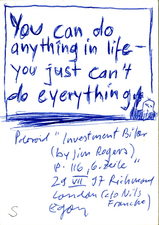 You can do
anything in life—
you just can't
do everything.
"Investment Biker
(by Jim Rogers)
P. 116, 6. Zeile"
29 VII 97 Richmond
London (c/o Nils
Francke)
S